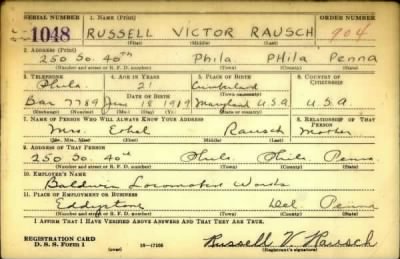 SERIAL NUMBER 1. NAME (Print) ORDER NUMBER
1048 RUSSELL VICTOR RAUSCH 904
(First) (Middle) (Last)
2. ADDRESS (Print)
250 So. 40th Phila PHila Penna
(Number and street or R. F. D. number) (Town) (County) (State)
3. TELEPHONE 4. AGE IN YEARS 5. PLACE OF BIRTH 6. COUNTRY OF CITIZENSHIP
Phila 21 Cumberland
DATE OF BIRTH (Town or county)
Bar 7789 18 1919 Maryland U.S.A. U.S.A.
7. NAME OF PERSON WHO WILL ALWAYS KNOW YOUR ADDRESS 8. RELATIONSHIP OF THAT PERSON
Mrs. Ethel Rausch Mother
(Mr., Mrs., Miss) (First) (Middle) (Last)
9. ADDRESS OF THAT PERSON
250 So. 40th Phila. Phila. Penna
(Number and street or R. F. D. number) (Town) (County) (State)
10. EMPLOYER'S NAME
Baldwin Locomotive Works
11. PLACE OF EMPLOYMENT OR BUSINESS
Eddystone Del Penna
(Number and street or R. F. D. number) (Town) (County) (State)
I AFFIRM THAT I HAVE VERIFIED ABOVE ANSWERS AND THAT THEY ARE TRUE.
REGISTRATION CARD
D. S. S. Form 1 (over) 16—17105 Russell V Rausch
(Registrant's signature)